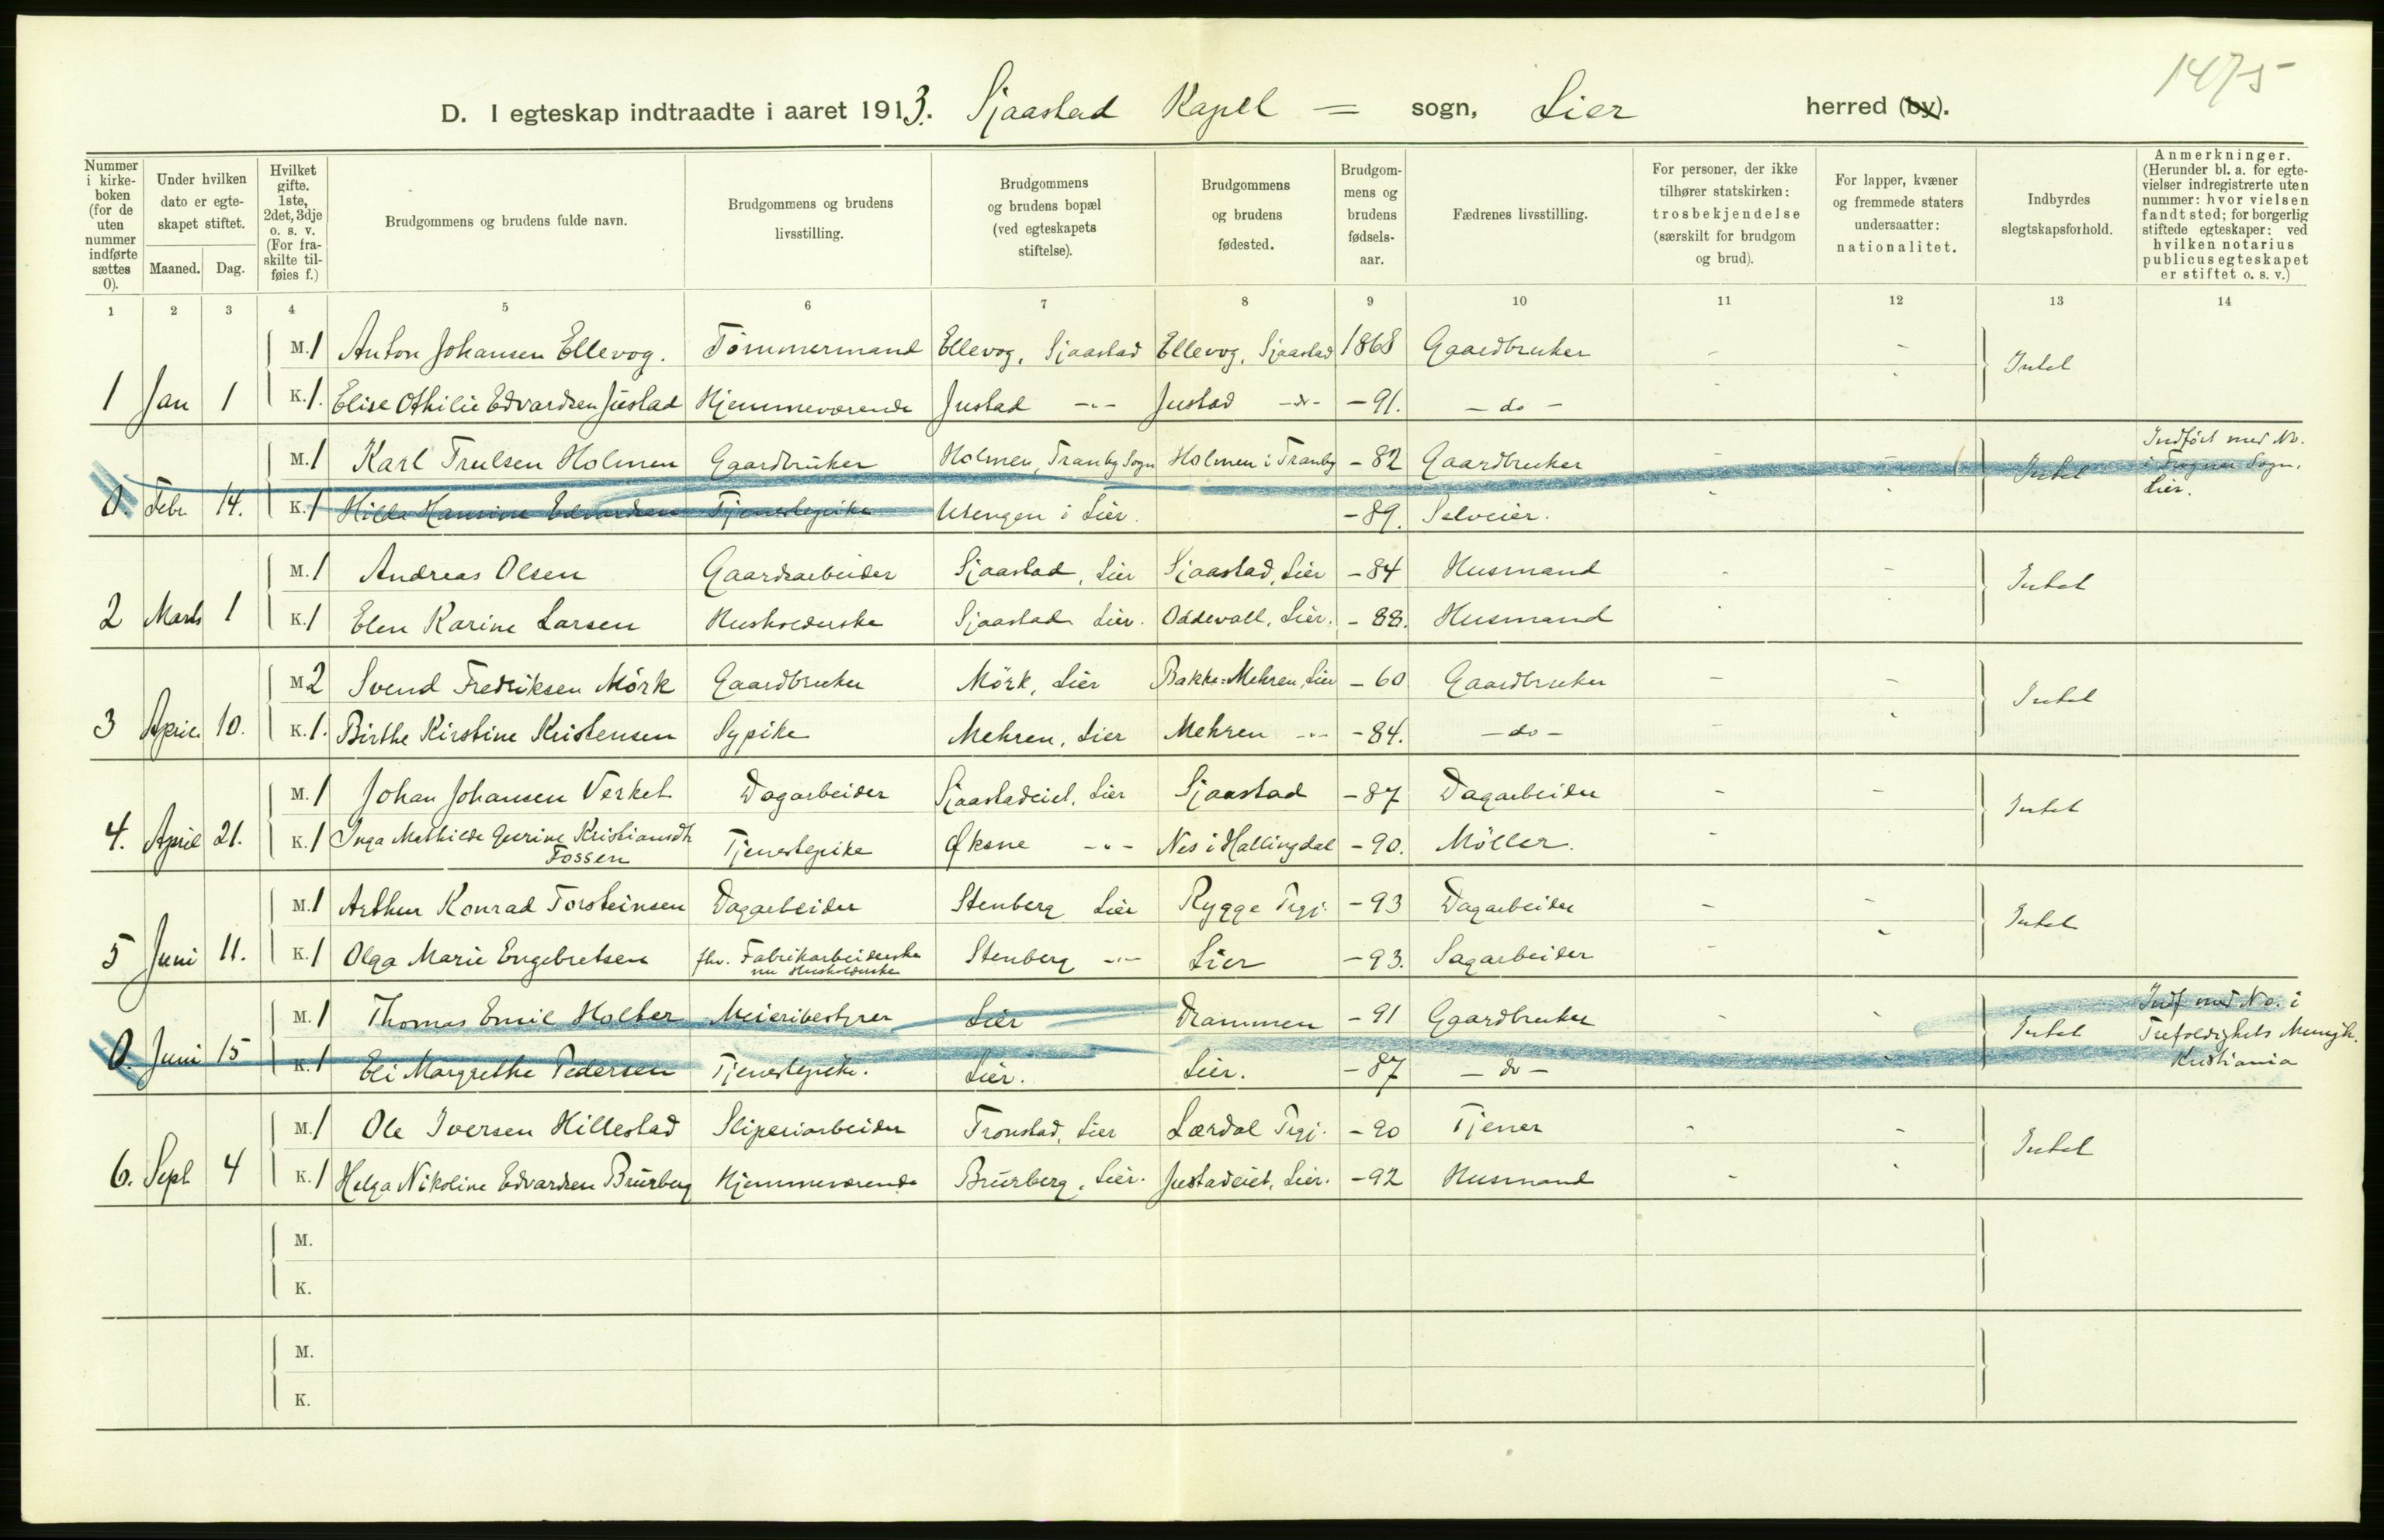 1475
D. I egteskap indtraadte i aaret 1913. Sjaastad Kapel = sogn, Lier herred (by).
Nummer i kirke-boken (for de uten nummer indførte sættes 0).
Under hvilken dato er egte-skapet stiftet.
Maaned. Dag.
Hvilket gifte. 1ste, 2det, 3dje o. s. v. (For fra-skilte til-føies f.)
Brudgommens og brudens fulde navn.
Brudgommens og brudens livsstilling.
Brudgommens og brudens bopæl (ved egteskapets stiftelse).
Brudgommens og brudens fødested.
Brudgom-mens og brudens fødsels-aar.
Fædrenes livsstilling.
For personer, der ikke tilhører statskirken: trosbekjendelse (særskilt for brudgom og brud).
For lapper, kvæner og fremmede staters undersaatter: nationalitet.
Indbyrdes slegtskapsforhold.
Anmerkninger. (Herunder bl. a. for egte-vielser indregistrerte uten nummer: hvor vielsen fandt sted; for borgerlig stiftede egteskaper: ved hvilken notarius publicus egteskapet er stiftet o. s. v.)
1 2 3 4 5 6 7 8 9 10 11 12 13 14
M. 1 Anton Johansen Ellevog. Tömmermand Ellevog, Sjaastad Ellevog, Sjaastad 1868 Gaardbruker - - Intet
1 Jan 1 K. 1. Elise Othilie Edvardsen Justad Hjemmeværende Justad -"- Justad -do- -91. - do -
M. 1 Karl Trulsen Holmen Gaardbruker Holmen, Tranby Sogn Holmen i Tranby -82 Gaardbruker - - Intet Indfört med No. i Frogner Sogn, Lier.
0. Febr 14. K. 1 Hilda Hansine Edvardsen Tjenestepike Utengen i Lier. -89. Selveier.
M. 1 Andreas Olsen Gaardsarbeider Sjaastad, Lier Sjaastad, Lier -84 Husmand - - Intet
2 Marts 1 K. 1 Elen Karine Larsen Husholderske Sjaastad Lier. Oddevall, Lier. - 88. Husmand
M. 2 Svend Fredriksen Mörk Gaardbruker Mörk, Lier Bakke-Mehren, Lier - 60 Gaardbruker - - Intet
3 April 10. K. 1. Birthe Kirstine Kristensen Sypike Mehren, Lier Mehren -"- -84. - do -
M. 1 Johan Johansen Verket Dagarbeider Sjaastadeiet, Lier Sjaastad -87 Dagarbeider - - Intet
4. April 21. K. 1 Inga Mathilde Gurine Kristiansdtr Fossen Tjenestepike Øksne -"- Nes i Hallingdal -90. Möller.
M. 1 Arthur Konrad Torsteinsen Dagarbeider Stenberg Lier Rygge Prgj. -93 Dagarbeider - - Intet
5 Juni 11. K. 1 Olga Marie Engebretsen fhv. Fabrikarbeiderske nu Husholderske Stenberg -"- Lier -93. Sagarbeider
M. 1 Thomas Emil Holter Meieribestyrer Lier Drammen -91 Gaardbruker - - Intet Indf med No. i Trefoldighets Menigh. Kristiania
0. Juni 15 K. 1 Eli Margrethe Pedersen Tjenestepike. Lier. Lier. -87 - do -
M. 1 Ole Iversen Hillestad Sliperiarbeider Tronstad, Lier Lærdal Prgj. -90 Tjener - - Intet
6. Sept 4 K. 1 Helga Nikoline Edvardsen Brurberg Hjemmeværende Brurberg, Lier. Justadeiet, Lier. -92 Husmand -
M.
K.
M.
K.